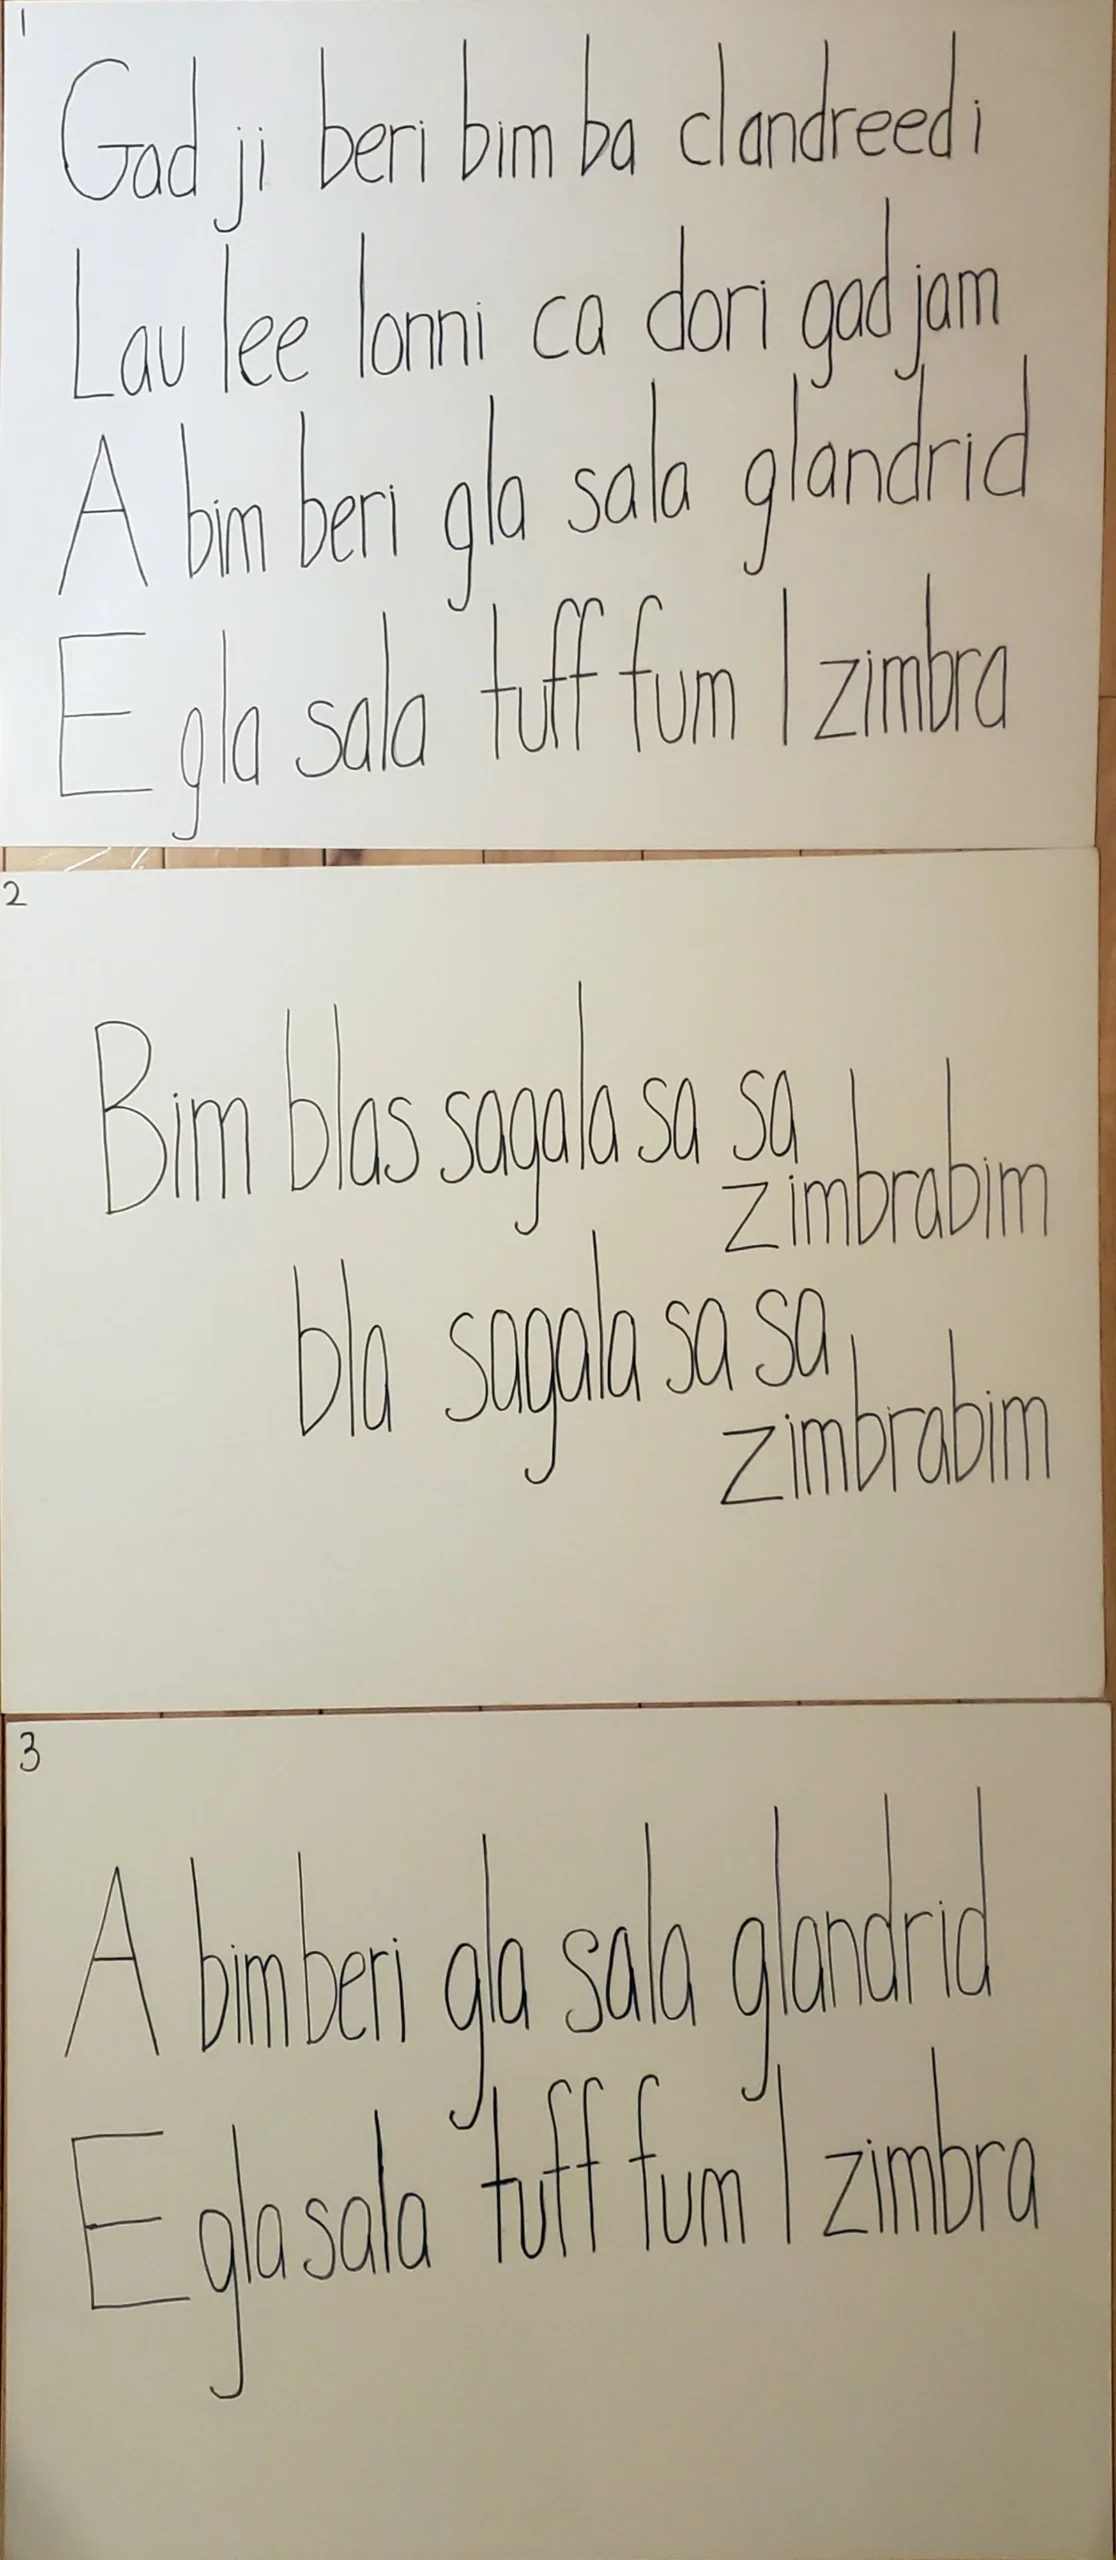 1
Gad ji beri bim ba clandreedi
Lau lee lonni ca dori gad jam
A bim beri gla sala glandrid
E gla sala tuff fum I zimbra
2
Bim blas sagala sa sa
zimbrabim
bla sagala sa sa
zimbrabim
3
A bim beri gla sala glandrid
E gla sala tuff fum I zimbra